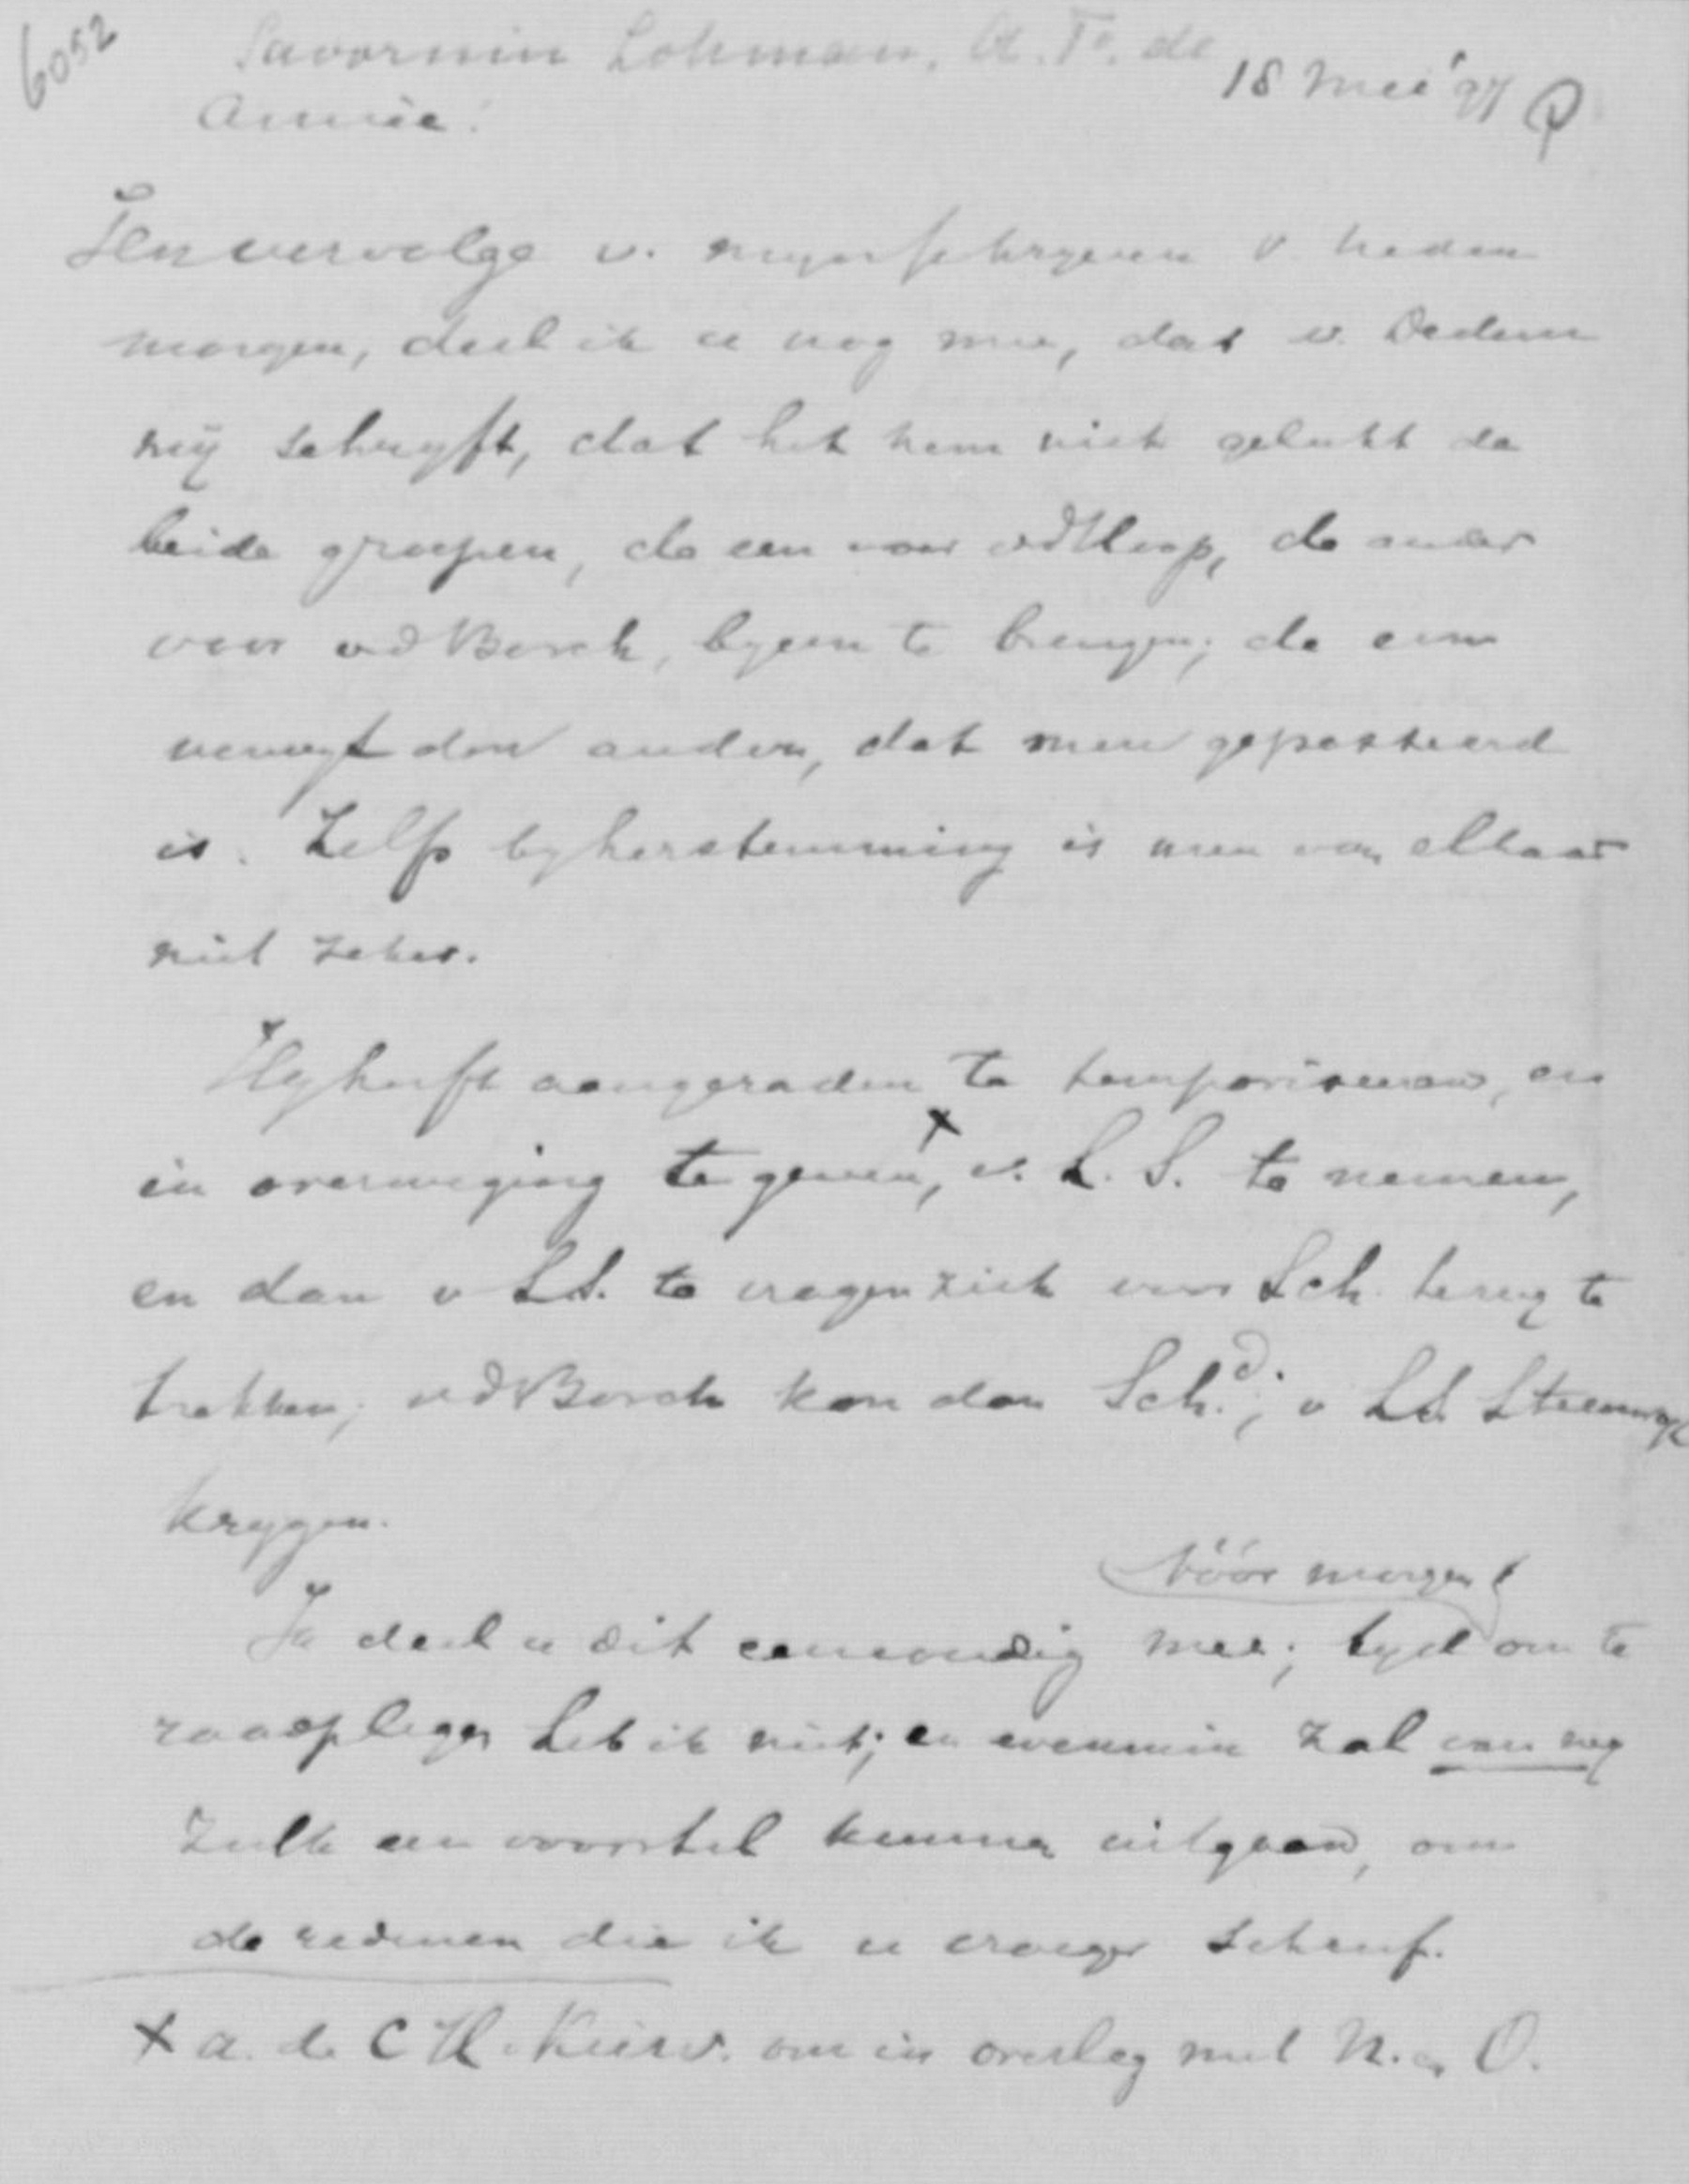 6052
Savornin Lohman, A. F. de
18 Mei '97
Amice!
Ten vervolge v. mijn schrijven v. heden
morgen, deel ik u nog mee, dat v. Dedem
mij schrijft, dat het hem niet gelukt de
beide groepen, de een voor vdKlop, de ander
voor vdBorch, byeen te brengen; de een
verwijt den ander, dat men gepasseerd
is. Zelfs bij herstemming is men van elkaar
niet zeker.
Hij heeft aangeraden te temporiseeren, en
in overweging te geven x, v. L. S. te nemen,
en dan v L.S. te vragen zich voor Sch. terug te
trekken; vdBorch kon dan Sch.d; v L.S. Steenwyk
krygen.
vóór morgen
Ik deel u dit eenvoudig mee; tyd om te
raadplegen heb ik niet; en evenmin zal van my
zulk een voorstel kunnen uitgaan, om
de redenen die ik u vroeger schreef.
x a. de CH. Kiesv. om in overleg met N. en O.